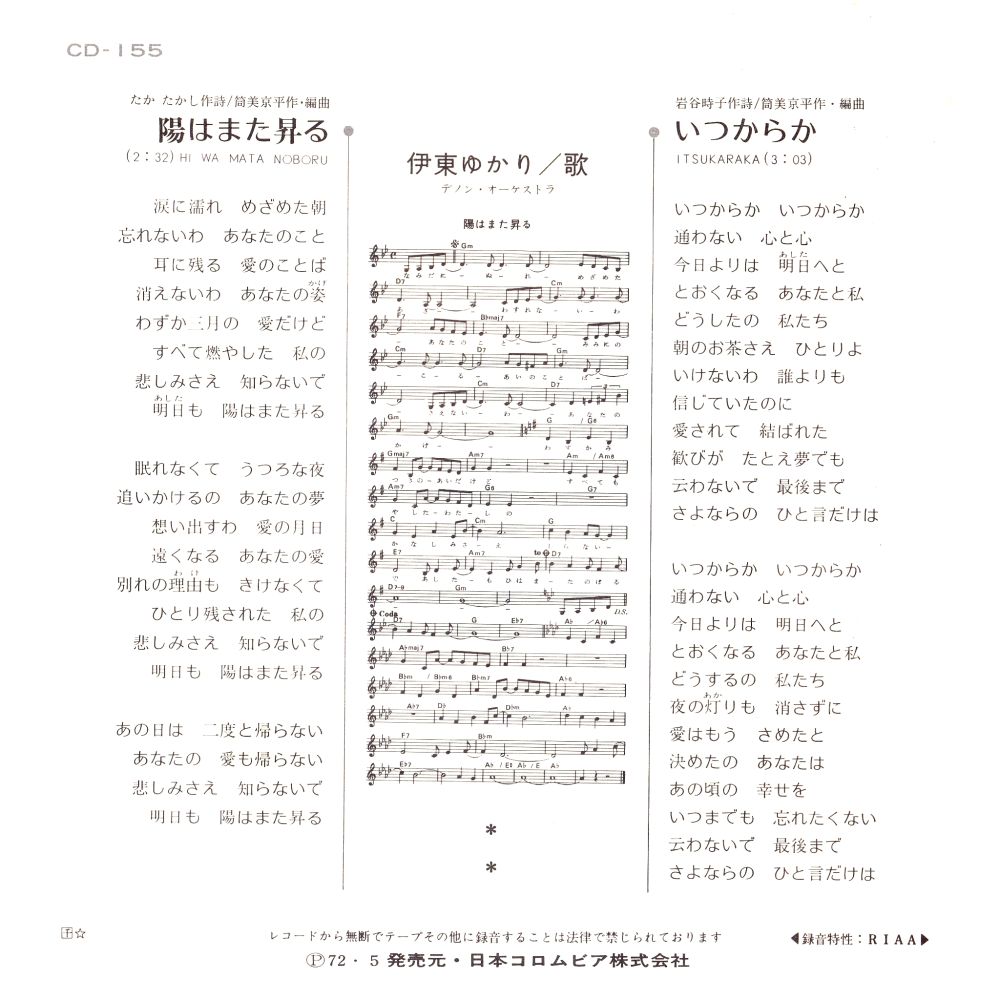 CD-155
たか たかし作詩/筒美京平作・編曲
陽はまた昇る
(2:32) HI WA MATA NOBORU
涙に濡れ　めざめた朝
忘れないわ　あなたのこと
耳に残る　愛のことば
消えないわ　あなたの姿
かげ
わずか三月の　愛だけど
すべて燃やした　私の
悲しみさえ　知らないで
あした
明日も　陽はまた昇る
眠れなくて　うつろな夜
追いかけるの　あなたの夢
想い出すわ　愛の月日
遠くなる　あなたの愛
わけ
別れの理由も　きけなくて
ひとり残された　私の
悲しみさえ　知らないで
明日も　陽はまた昇る
あの日は　二度と帰らない
あなたの　愛も帰らない
悲しみさえ　知らないで
明日も　陽はまた昇る
伊東ゆかり／歌
デノン・オーケストラ
陽はまた昇る
Gm
なみだに─ ぬ れ ─ めざめた
D7 Cm
あさ─ わすれな─い─わ
F7 B♭maj7
─あなたのこと─ ─みみにの
Cm D7 Gm
─こ─る─ あいのことば─
Cm D7
─さえない─わ─ ─あなたの
G /G♭
かげ─ わずかみ
Gmaj7 Am7 Am Am/A♭
つきの─あいだけど すべても
Am7 G♭ G7
やした─わたし─の
C Cm G
かなしみさ─え しらない─
E7 Am7 to D7
であした─も ひはま─たのぼる
D7-9 Gm
D.S.
Coda
D7 G E♭7 A♭ /A♭6
A♭maj7 B♭7
B♭m B♭m/B♭ B♭m7 A♭6
A♭7 D♭ D♭m A♭
F7 B♭m
E♭7 A♭ /E A♭/E A♭
*
*
岩谷時子作詩/筒美京平作・編曲
いつからか
ITSUKARAKA (3:03)
いつからか　いつからか
通わない　心と心
あした
今日よりは　明日へと
とおくなる　あなたと私
どうしたの　私たち
朝のお茶さえ　ひとりよ
いけないわ　誰よりも
信じていたのに
愛されて　結ばれた
歓びが　たとえ夢でも
云わないで　最後まで
さよならの　ひと言だけは
いつからか　いつからか
通わない　心と心
今日よりは　明日へと
とおくなる　あなたと私
どうするの　私たち
あか
夜の灯りも　消さずに
愛はもう　さめたと
決めたの　あなたは
あの頃の　幸せを
いつまでも　忘れたくない
云わないで　最後まで
さよならの　ひと言だけは
レコードから無断でテープその他に録音することは法律で禁じられております
Ⓟ72・5 発売元・日本コロムビア株式会社
◀録音特性：RIAA▶